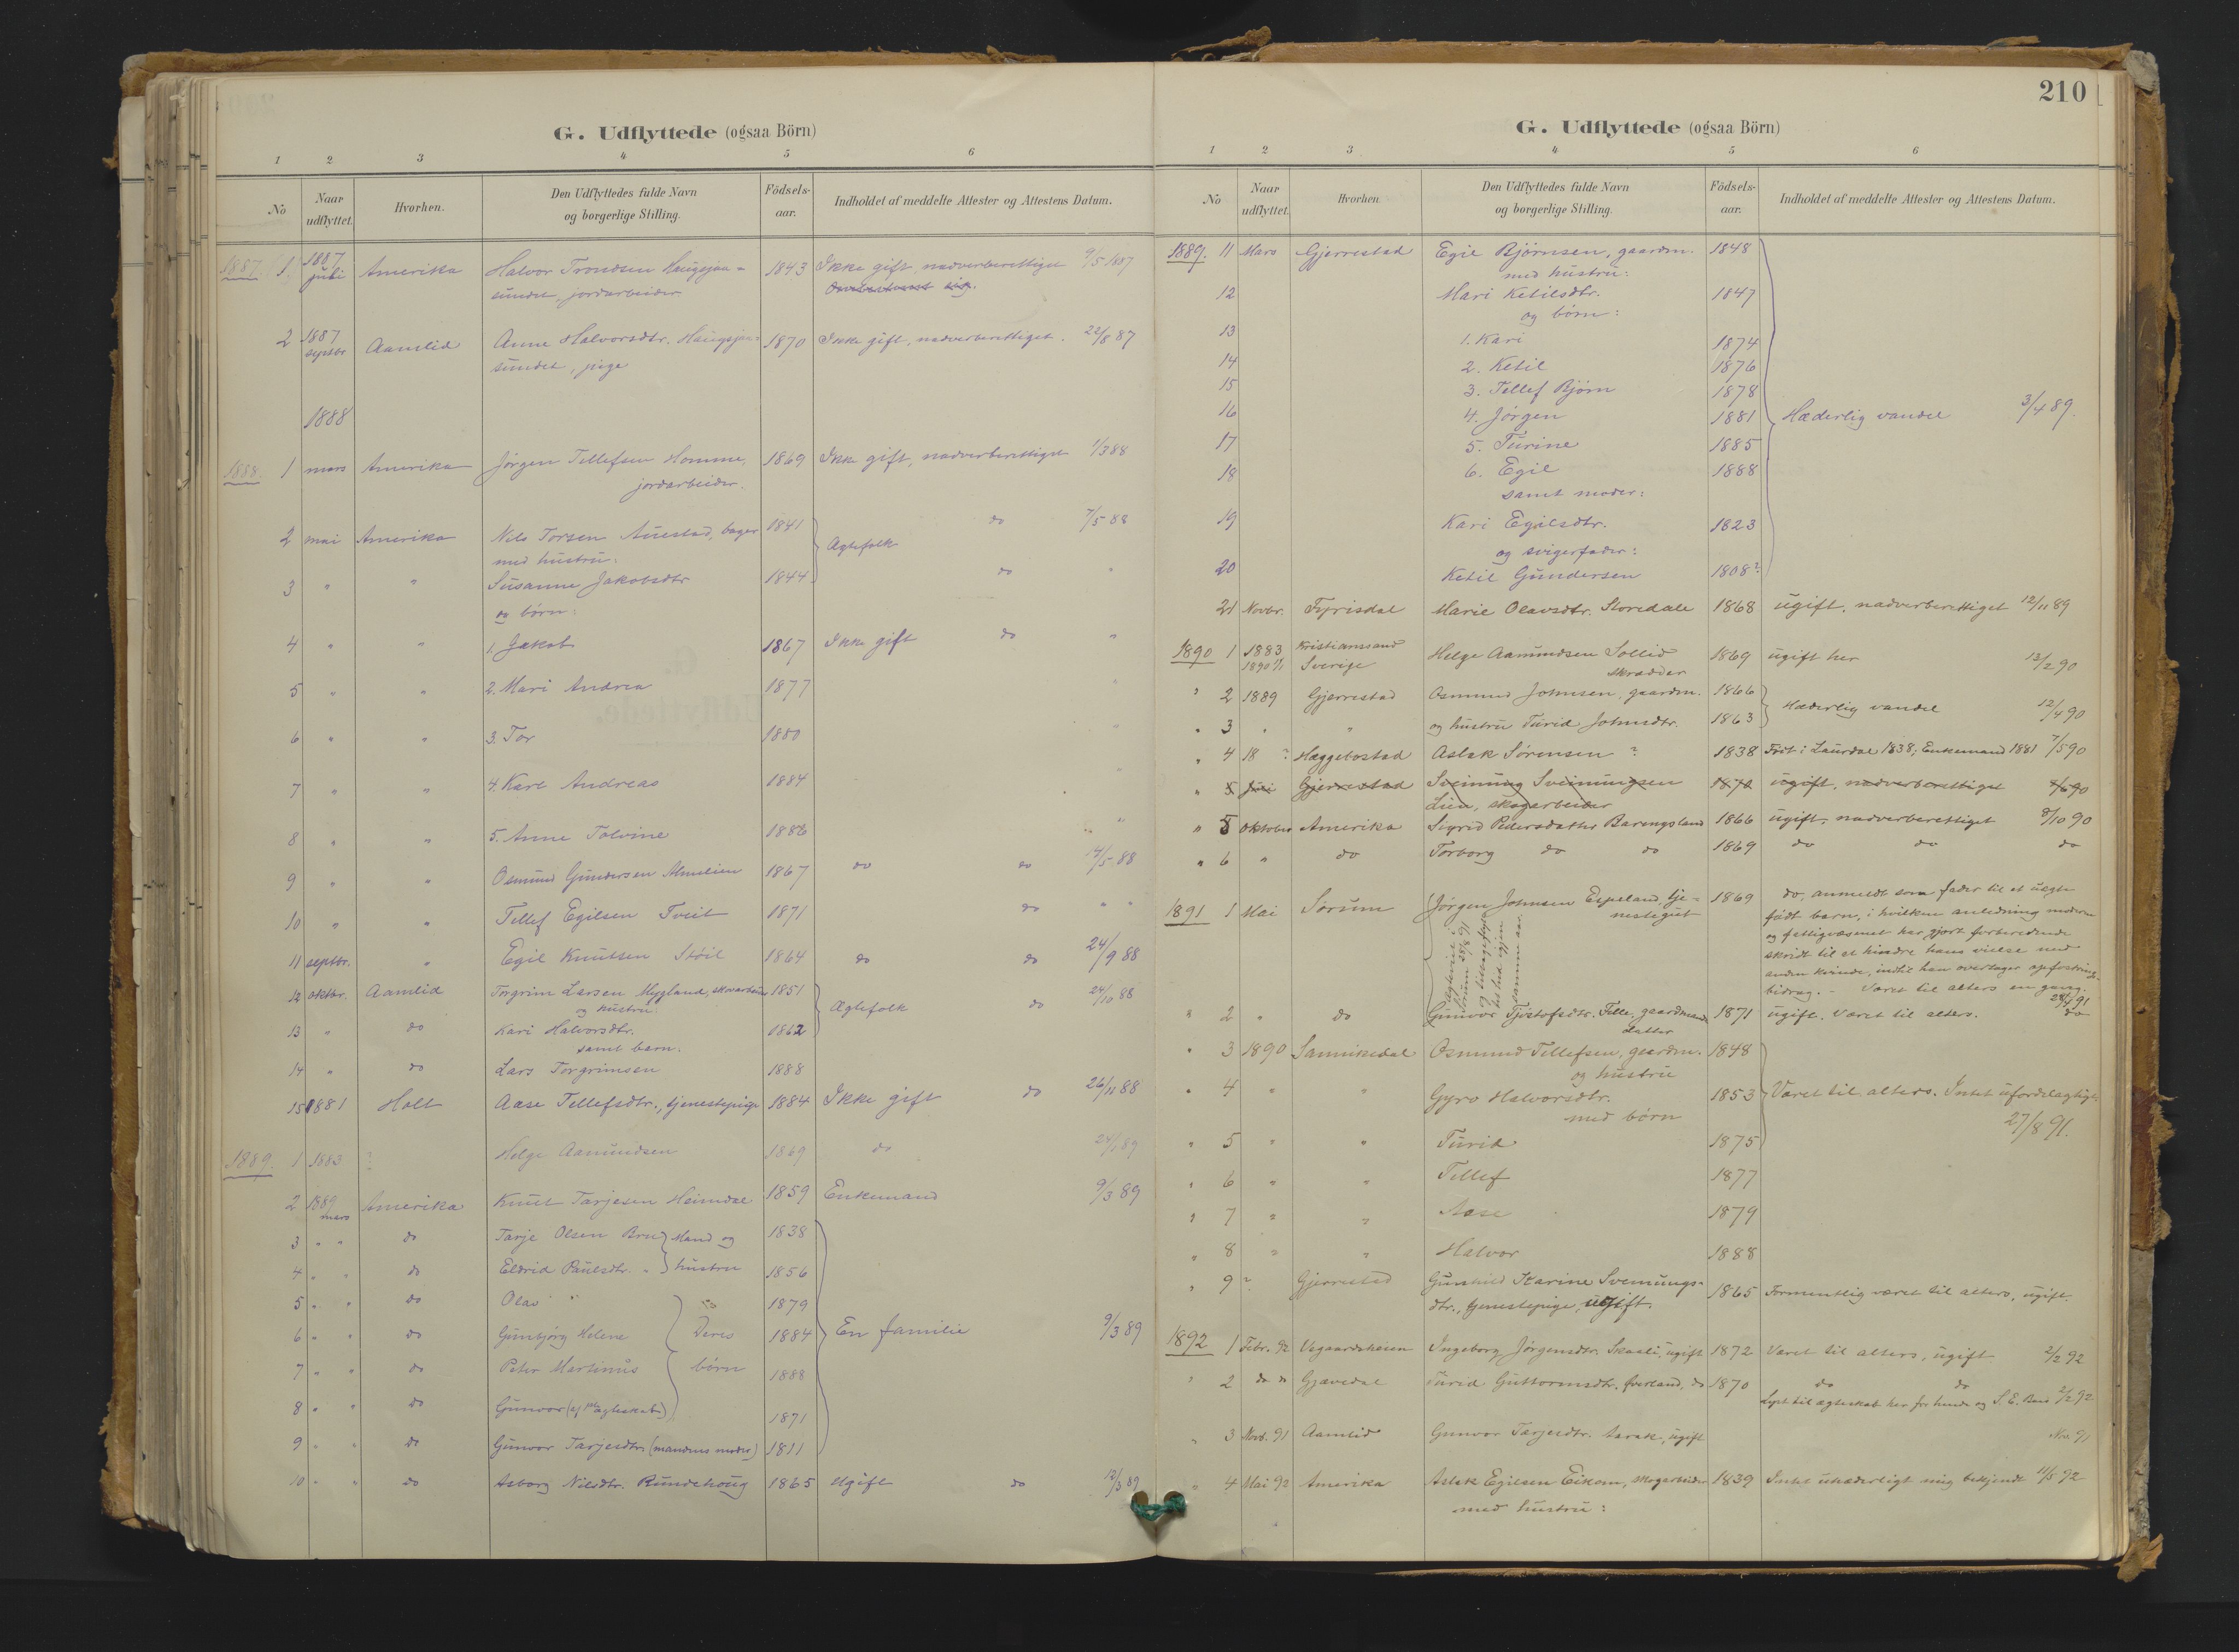 G. Udflyttede (ogsaa Börn)
1 2 3 4 5 6
No
Naar udflyttet.
Hvorhen.
Den Udflyttedes fulde Navn og borgerlige Stilling.
Födsels-aar.
Indholdet af meddelte Attester og Attestens Datum.
1887. 1. 1887 juli Amerika Halvor Trondsen Haugsjaa- 1843 Ikke gift, nadverberettiget 9/5 1887
sundet, jordarbeider
2 1887 septbr Aamlid Anne Halvorsdtr. Haugsjaa- 1870 Ikke gift, nadverberettiget. 22/8 87
sundet, pige
1888
1888. 1 mars Amerika Jörgen Tellefsen Homme, 1869 Ikke gift, nadverberettiget 1/3 88
jordarbeider.
2 mai Amerika Nils Torsen Auestad, bager 1841 Ægtefolk do 7/5 88
med hustru:
3 " " Susanne Jakobsdtr 1844 do "
og börn:
4 " " 1. Jakob 1867 Ikke gift do "
5 " " 2. Mari Andrea 1877 "
6 " " 3. Tor 1880 "
7 " " 4. Karl Andreas 1884 "
8 " " 5. Anne Tolvine 1886 "
9 " " Osmund Gundersen 1867 do do 14/5 88
10 " " Tellef Egilsen Tveit 1871 do " "
11 septbr. " Egil Knutsen Støil 1864 do do 24/9 88
12 oktbr. Aamlid Torgrim Larsen Mygland, skovarbeider 1851 Ægtefolk do 24/10 88
og hustru:
13 " do Kari Halvorsdtr. 1862
samt barn:
14 " do Lars Torgrimsen 1888
15 1881 Holt Aase Tellefsdtr., tjenestepige 1884 Ikke gift do 26/11 88
1889. 1 1883 ? Helge Aamundsen 1869 do 24/1 89
2 1889 mars Amerika Knut Tarjesen Heimdal 1859 Enkemand 9/3 89
3 " " do Tarje Olsen Bru Mand og 1838
4 " " do Eldrid Paulsdtr. " hustru 1856
5 " " do Olav " 1879
6 " " do Gunbjörg Helene Deres 1884 En familie 9/3 89
7 " " do Peter Martinus börn 1888
8 " " do Gunvor (af ægteskab) 1871
9 " " do Gunvor Tarjesdtr. (mandens moder) 1811
10 " " do Asborg Nilsdtr. Rundehoug 1865 Ugift do 12/3 89
210
G. Udflyttede (ogsaa Börn)
1 2 3 4 5 6
No
Naar udflyttet.
Hvorhen.
Den Udflyttedes fulde Navn og borgerlige Stilling.
Födsels-aar.
Indholdet af meddelte Attester og Attestens Datum.
1889. 11 Mars Gjerrestad Egil Bjørnsen, gaardm. 1848
med hustru:
12 Mari Ketilsdtr. 1847
og børn:
13 1. Kari 1874
14 2. Ketil 1876
15 3. Tellef Bjørn 1878
16 4. Jørgen 1881 Hæderlig vandel 3/4 89.
17 5. Turine 1885
18 6. Egil 1888
samt moder:
19 Kari Egilsdtr. 1823
og svigerfader:
20 Ketil Gundersen 1808?
21 Novbr. Fyrisdal Marie Olavsdtr. Storedale 1868 ugift, nadverberettiget 12/11 89
1890 1 1883 Kristianssand Helge Aamundsen Sollid 1869 ugift her 13/2 90
1890 Sverige skrædder
" 2 1889 Gjerrestad Osmund Johnsen, gaardm. 1866 Hæderlig vandel 12/4 90
" 3 " " og hustru Turid Johnsdtr. 1863
" 4 18 ? Hæggebostad Aslak Sørensen ? 1838 Født i Laurdal 1838; Enkemand 1881 7/5 90
" 5 Juli Gjerrestad Sveinung Sveinungsen 1870 ugift, nadverberettiget 8/6 90
Lien, skogarbeider
" 5 Oktober Amerika Sigrid Pedersdatter Barengsland 1866 ugift, nadverberettiget 8/10 90
" 6 " do Torborg do do 1869 do do do
1891 1 Mai Sørum Jørgen Johnsen Espeland, tje- 1869 do, anmeldt som fader til et uægte
nestegut født barn, i hvilken anledning moderen
og fattigvæsenet har gjort forberedende
skridt til at hindre hans vielse med
anden kvinde, indtil han overtager opfostrings-
bidrag. - Været til alters en gang. 28/4 91
" 2 " do Gunvor Tjöstofsdtr. Felle, gaardmands 1871 ugift. Været til alters. do
datter
" 3 1890 Sannikedal Osmund Tellefsen, gaardm. 1848
og hustru
" 4 " " Gyro Halvorsdtr. 1853 Været til alters. Intet ufordelagtigt.
med børn 27/8 91.
" 5 " " Turid 1875
" 6 " " Tellef 1877
" 7 " " Aase 1879
" 8 " " Halvor 1888
" 9 ? Gjerrestad Gunhild Karine Svenungs- 1865 Formentlig været til alters, ugift.
dtr., tjenestepige, ugift.
1892 1 Febr. 92 Vegaardsheien Ingeborg Jørgensdtr. Skaali, ugift 1872 Været til alters, ugift 2/2 92
" 2 do " Gjøvedal Turid Guttormsdtr. Øverland, do 1870 do do
Lyst til ægteskab her for hende og S. E. 2/2 92
" 3 Novb. 91 Aamlid Gunvor Tarjesdtr. , ugift Nov 91
" 4 Mai 92 Amerika Aslak Egilsen Eikom, skogarbeider 1839 Intet uhæderligt mig bekjendt 11/5 92
med hustru: